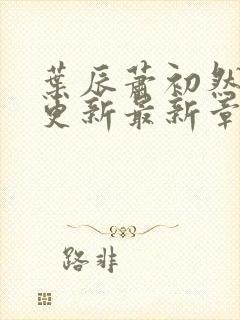 葉辰蕭初然
更新最新章
路非